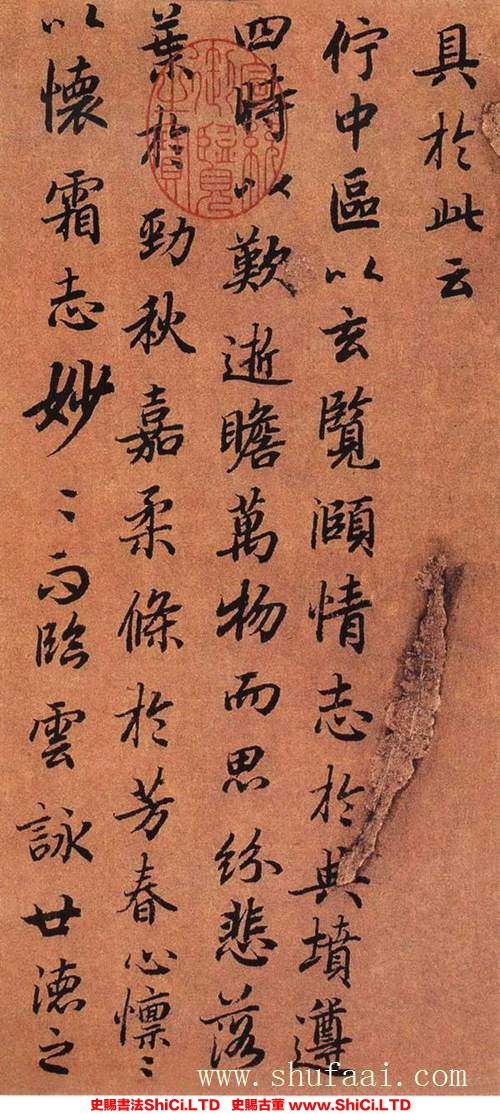 具於此云
佇中區以玄覽頤情志於典墳遵
四時以歎逝瞻萬物而思紛悲落
葉於勁秋嘉柔條於芳春心懍〻
以懷霜志妙〻而臨雲詠世德之
宣統御覽之寶
www.shufaai.com
史賜書法ShiCi.LTD 史賜古董ShiCi.LTD